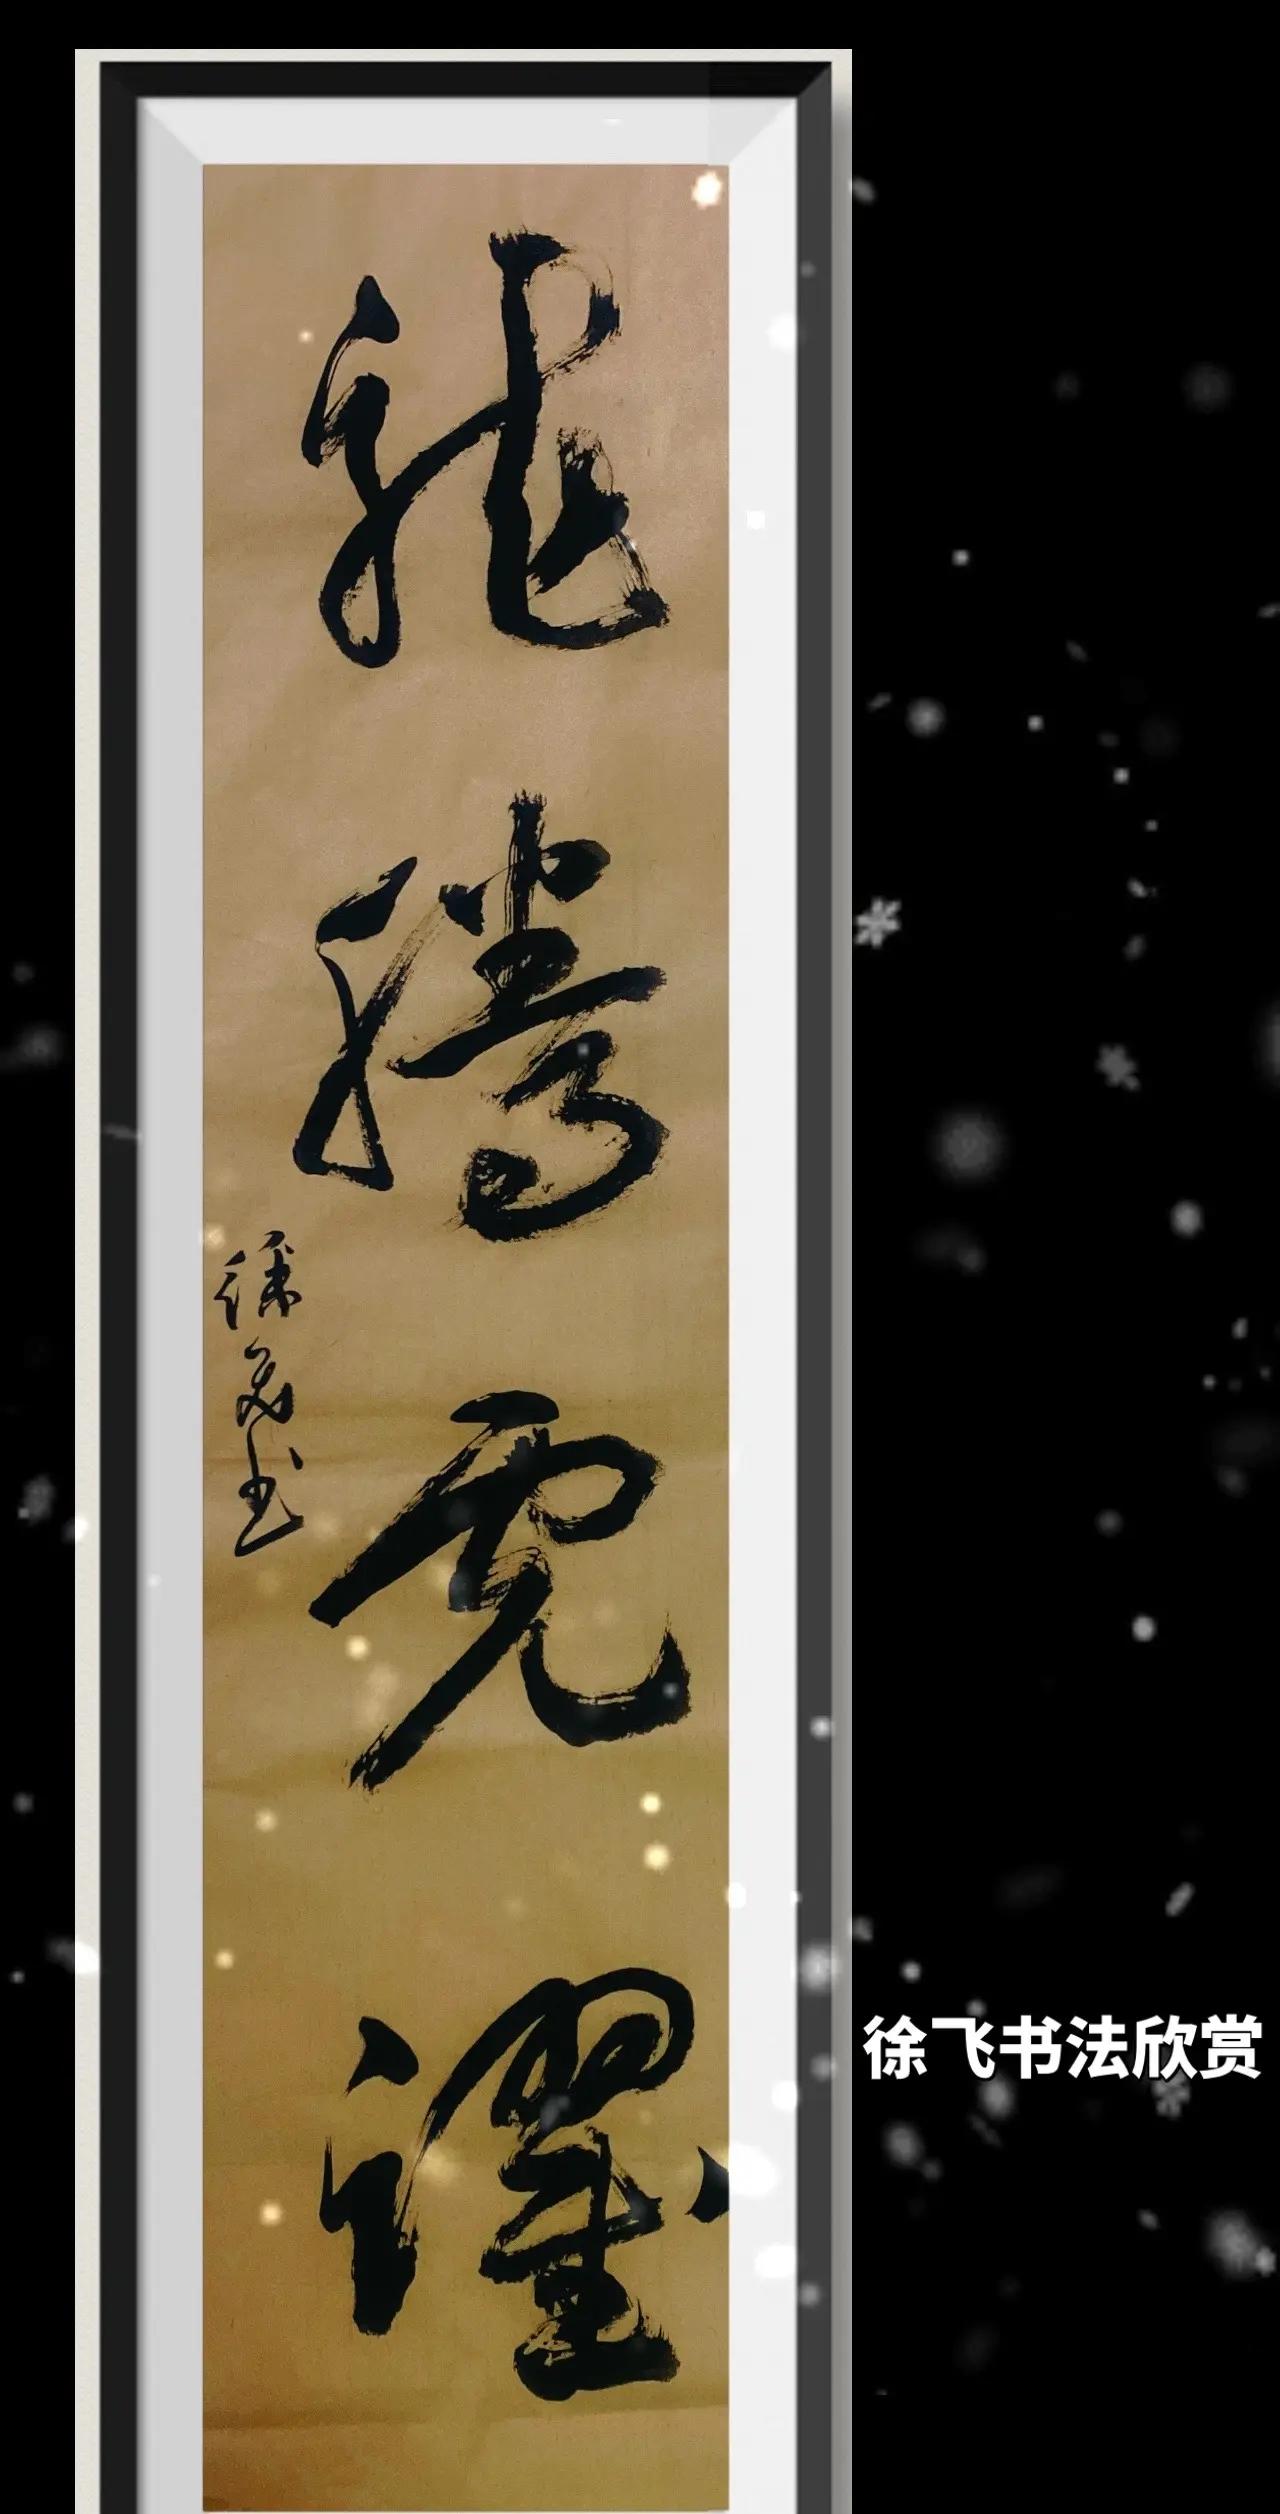 龍騰虎躍
徐飛书
徐飞书法欣赏